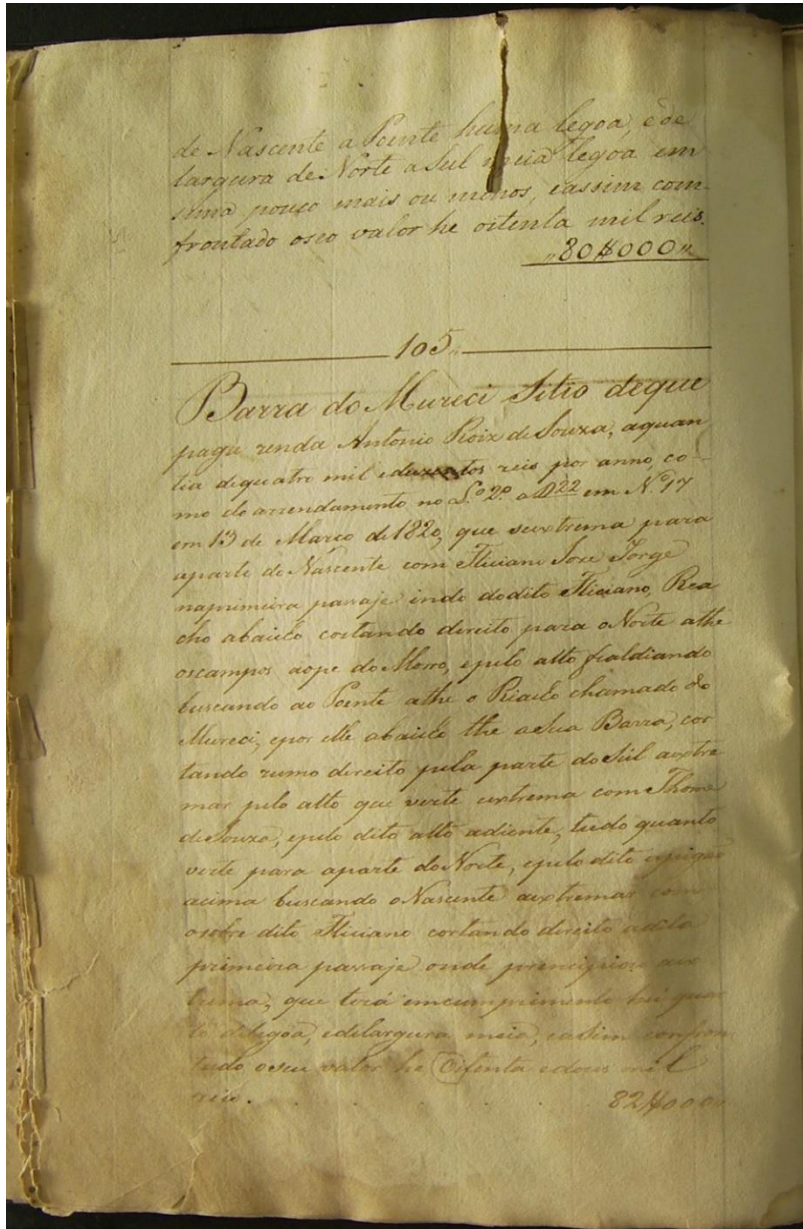 de Nascente a Poente huma legoa, e de
largura de Norte a Sul meia legoa em
sima pouco mais ou menos, eassim com-
frontado oseo valor he oitenta mil reis.
"80$000"
105"
Barra do Mureci Sitio deque
paga renda Antonio Roiz de Souza, aquan
tia dequatro mil eduzentos reis por anno, co-
mo do arrendamento no L.º 2.º a 22 em N.º 17
em 13 de Março de 1820, que seextrema para
aparte do Nascente com Feliciano Jose Jorge
naprimeira passaje indo dodito Feliciano, Rea
cho abaixo cortando direito para o Norte athe
oscampos aope do Morro, epelo alto fraldiando
buscando ao Poente athe o Riaxo chamado do
Mureci, epor elle abaixo the asua Barra, cor
tando rumo direito pela parte do Sul aextre
mar pelo alto que verte extrema com Thome
de Souza, epelo dito alto adiente, tudo quanto
verte para aparte do Norte, epelo dito espigão
acima buscando o Nascente aextremar com
osobre dito Feliciano cortando direito adita
primeira passaje onde principiou aex
trema, que terá emcumprimento hu quar
to delegoa, edelargura meia, eassim confron
tado oseu valor he oitenta edous mil
reis. . . . . 82$000"